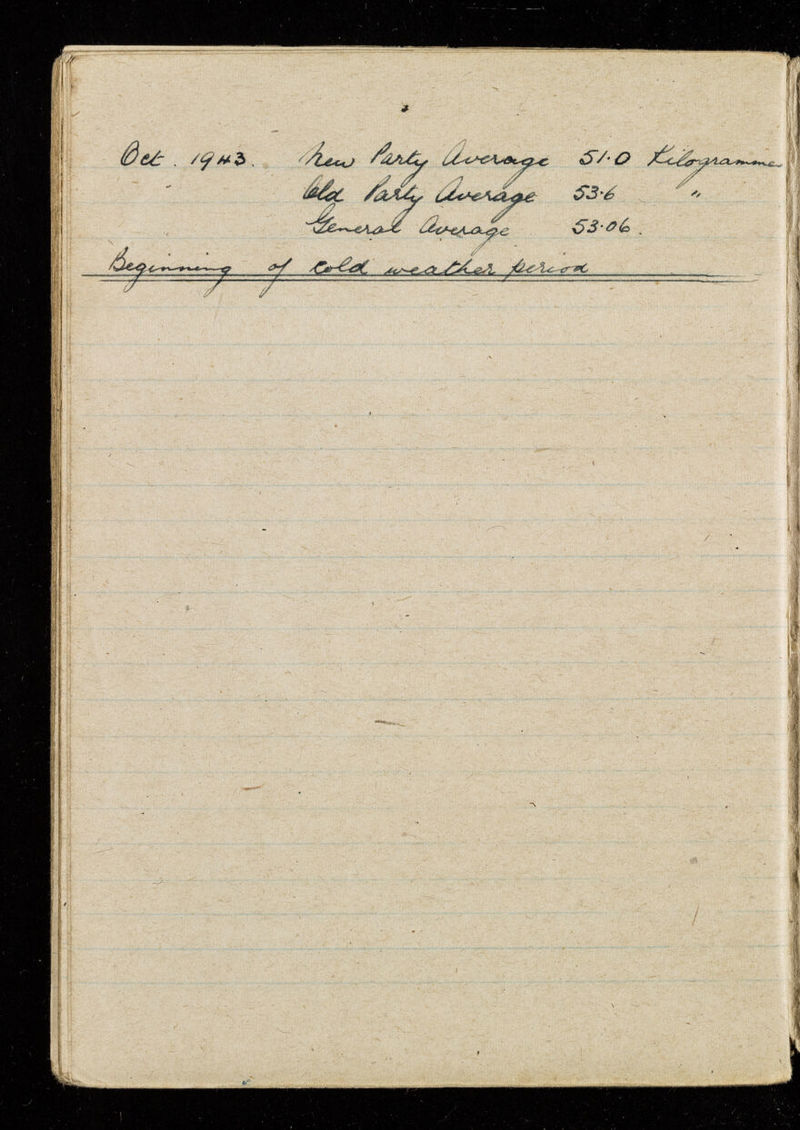 Oct. 1943. New Party Average 51.0 Kilogramme
Old Party Average 53.6 "
General Average 53.06.
Beginning of cold weather period